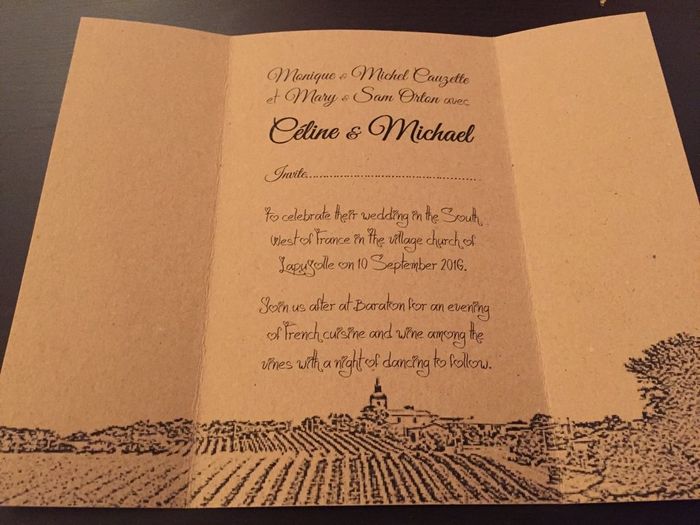 Monique & Michel Cauzette
et Mary & Sam Orton avec
Céline & Michael
Invite................................................
To celebrate their wedding in the South
West of France in the village church of
Lapujolle on 10 September 2016.
Join us after at Baraton for an evening
of French cuisine and wine among the
vines with a night of dancing to follow.